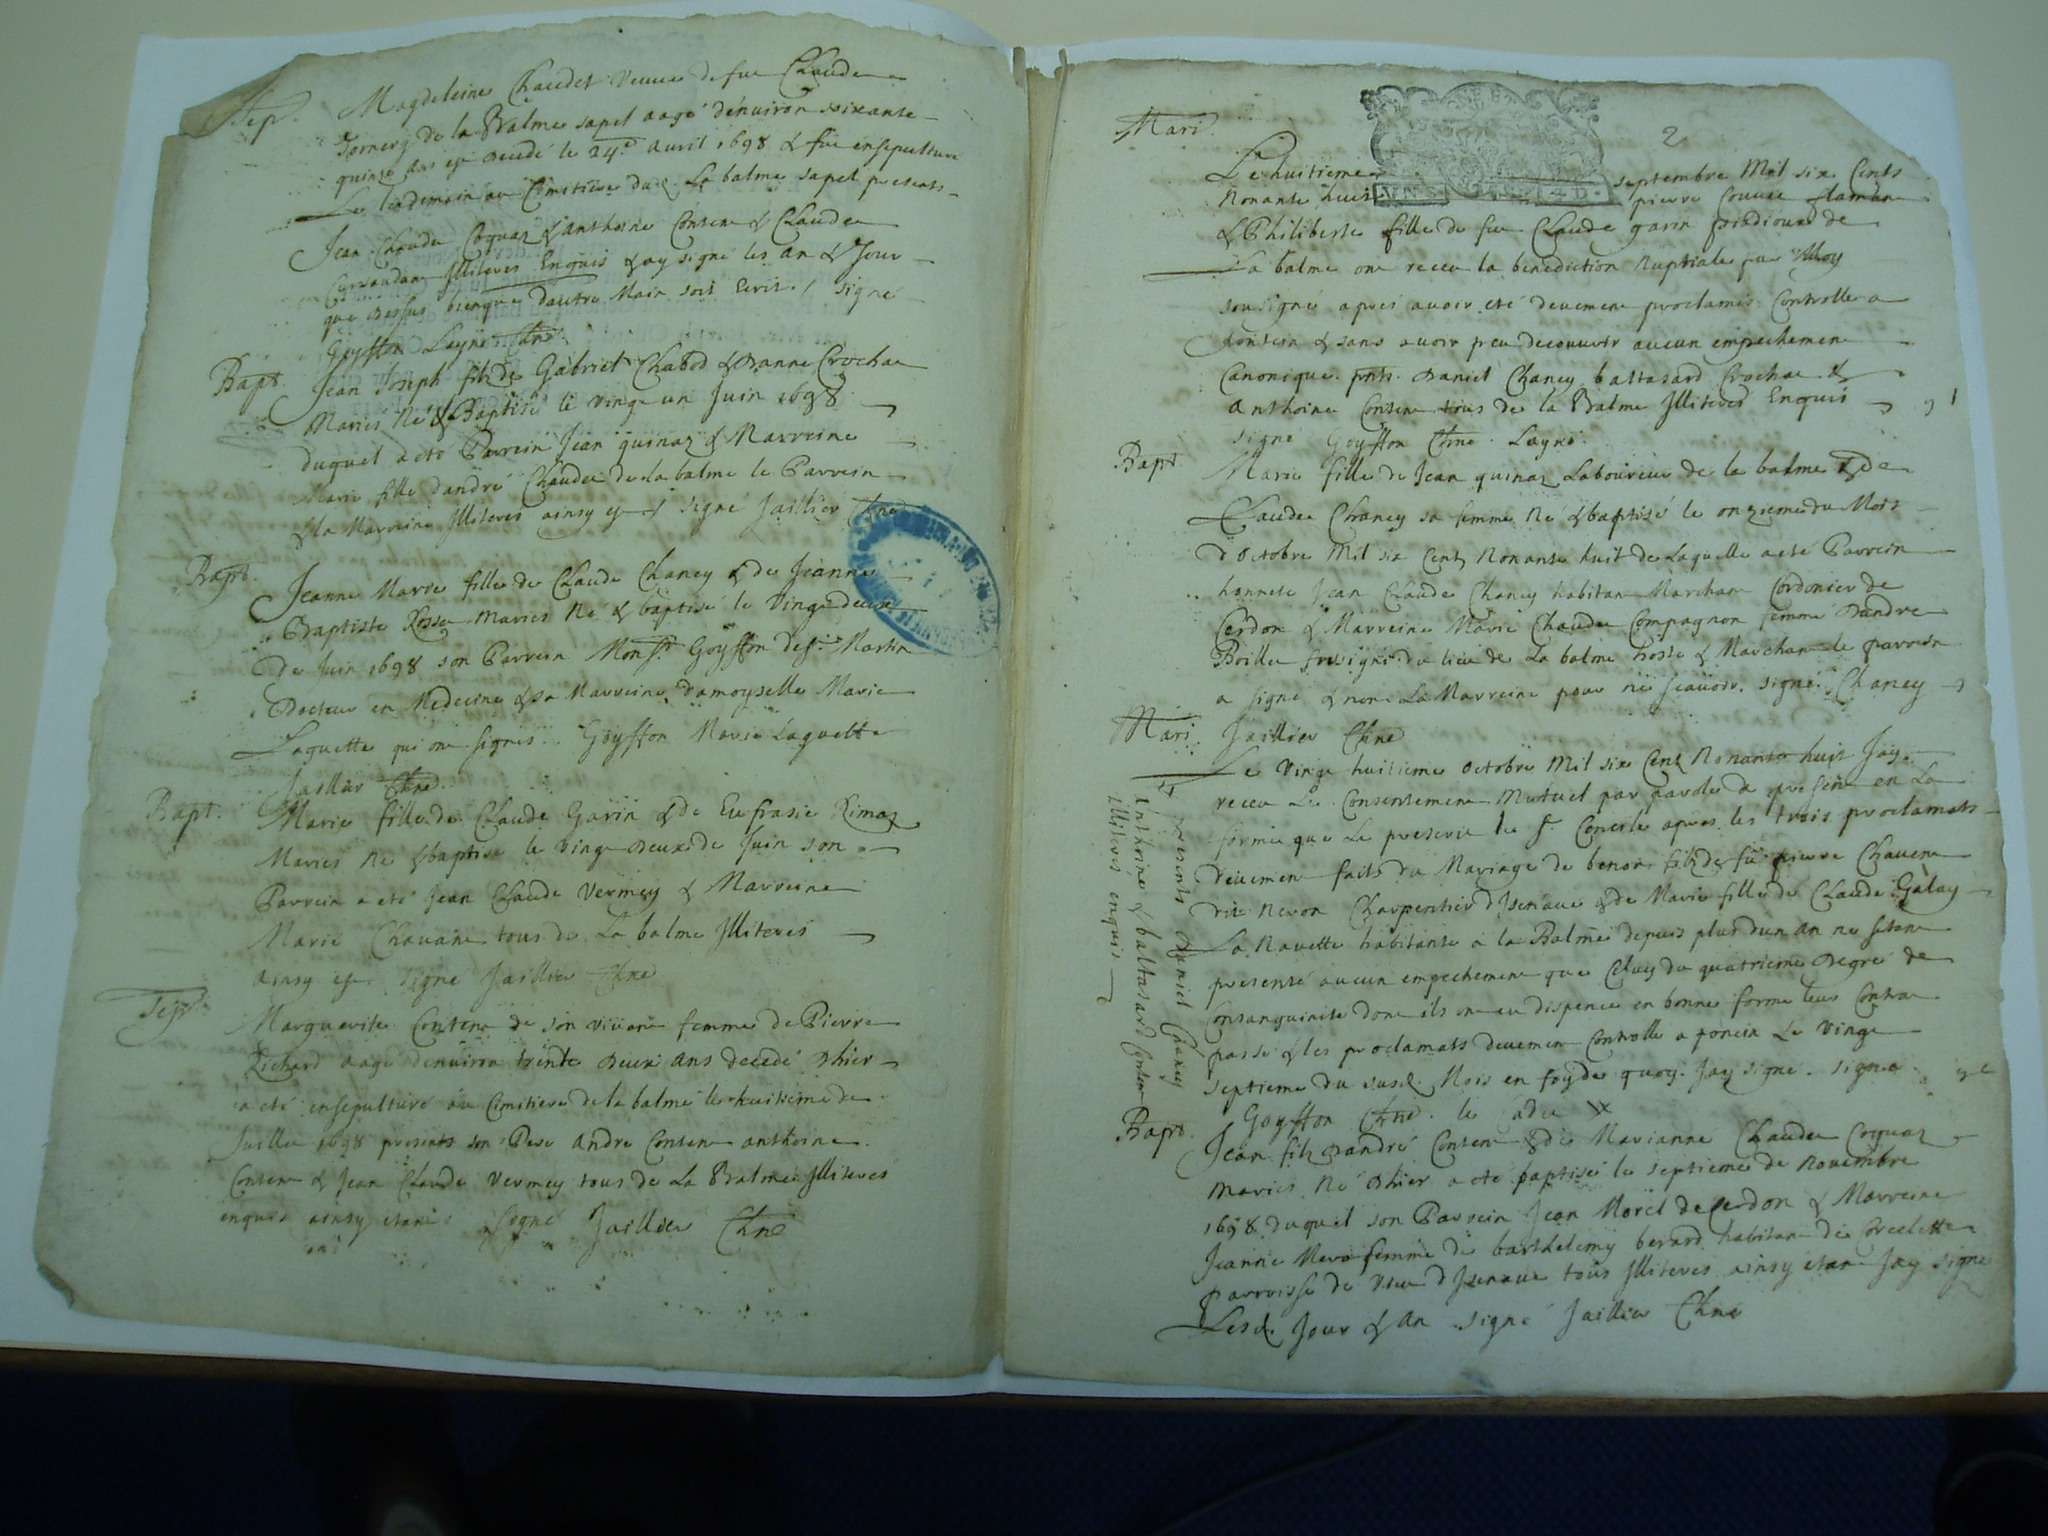 Sep. Magdeleine Chaudet veuve de feu Claude
de la Balme sapel aagé d'environ soixante
quinze ans est decedé le 24e avril 1698 & fut ensepulturé
Le lendemain au Cimitiere dud. La balme sapel presents
Jean Claude Coquaz & Anthoine Conten & Claude
Illiteres Enquis & ay signé les an & Jour
que dessus bienque dautre Main soit Ecrit / signé
Goyffon Layné Chne
Bapt. Jean Joseph filz de Gabriel Chabod & Danne Crochat
Mariés Né & Baptisé le vingt un Juin 1698
duquel a eté Parrein Jean quinaz & Marreine
Marie fille dandré Chaudet de la balme le Parrein
& la Marreine Illiteres ainsy est / signé Jaillier Chne
Bapt. Jeanne Marie fille de Claude Chaney & de Jeanne
Baptiste Rosset Mariés Né & baptisé le vingt deux
de Juin 1698 son Parrein Monsr. Goyffon de St. Martin
Docteur en Medecine & sa Marreine damoyselle Marie
Laguette qui ont signés. Goyffon Marie Laguette
Jaillier Chne
Bapt. Marie fille de Claude Gavin & de Eufrasie Rimaz
Mariés Né & baptisé le vingt deux de Juin son
Parrein a eté Jean Claude Vermey & Marreine
Marie Chavant tous de La balme Illiteres
ainsy est signé Jaillier Chne
Sep. Marguerite Conten de son vivant femme de Pierre
Richard aagé denviron trente deux ans decedé dhier
a eté ensepulturé au Cimitiere de la balme le huitième de
Juillet 1698 presents son Pere André Conten anthoine
Conten & Jean Claude Vermey tous de La Balme Illiteres
enquis ainsy etant signé Jaillier Chne
2
Mari. Le huitieme septembre Mil six Cents
Nonante huit pierre
& Philiberte fille de feu Claude gavin de
La balme ont receu la benediction Nuptiale par Moy
sousigné apres avoir eté deuement proclamés Controlle a
Poncin & sans avoir peu decouvrir aucun empechement
Canonique. pnts. Daniel Chaney baltasard Crochat &
Anthoine Conten tous de la Balme Illiteres Enquis
signé Goyffon Chne. Layné.
Bapt. Marie fille de Jean quinaz Laboureur de la balme & de
Claudee Chaney sa femme Né & baptisé le onzieme du Mois
d'Octobre Mil six Cent Nonante huit de Laquelle a eté Parrein
honnete Jean Claude Chaney habitant Marchant Cordonier de
Cerdon & Marreine Marie Chaudet Compagnon femme Dandre
Boillet du lieu de La balme hoste & Marchant le parrein
a signé & non La Marreine pour ne scavoir. signé. Chaney
Jaillier Chne
Mari. Le vingt huitieme octobre Mil six Cent Nonante huit Jay
receu Le Consentement Mutuel par parole de present en La
forme que Le prescrit le St. Concile apres les trois proclamats
deuement faits du Mariage de benoit filz de feu pierre Chavent
dit Neron Charpentier d'Isenave & de Marie fille de Claude Galay
La Navette habitante a la Balme depuis plus dun an ne setant
presenté aucun empechement que Celuy du quatrieme degré de
Consanguinité dont ils ont eu dispence en bonne forme leur Contrat
passé & les proclamats deuement Controllé a poncin Le vingt
septieme du susd. Mois en foy de quoy Jay signé. signé
Goyffon Chne.
presents Daniel Chaney
Anthoine & baltasard Conten
Illiteres enquis
Bapt. Jean filz dandré Conten & de Marianne Chaudet Coquaz
Mariés Né Dhier a eté baptisé le septieme de Novembre
1698 duquel son Parrein Jean Morel de Cerdon & Marreine
Jeanne femme de barthelemy berard habitant de Corcelette
parroisse de d'Isenave tous Illiteres ainsy etant Jay signé
Lesd. Jour & An signé Jaillier Chne